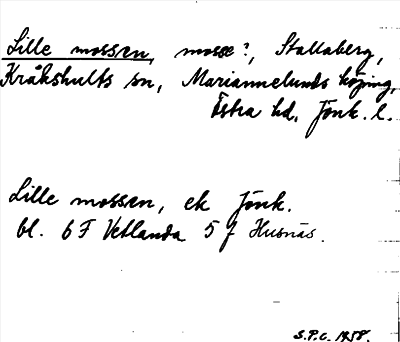 Lille mossen, mosse?, Stallaberg,
Kråkshults sn, Mariannelunds köping,
Östra hd, Jönk. l.
Lille mossen, ek Jönk.
bl. 6 F Vetlanda 5 f Husnäs.
S.P.C. 1958.